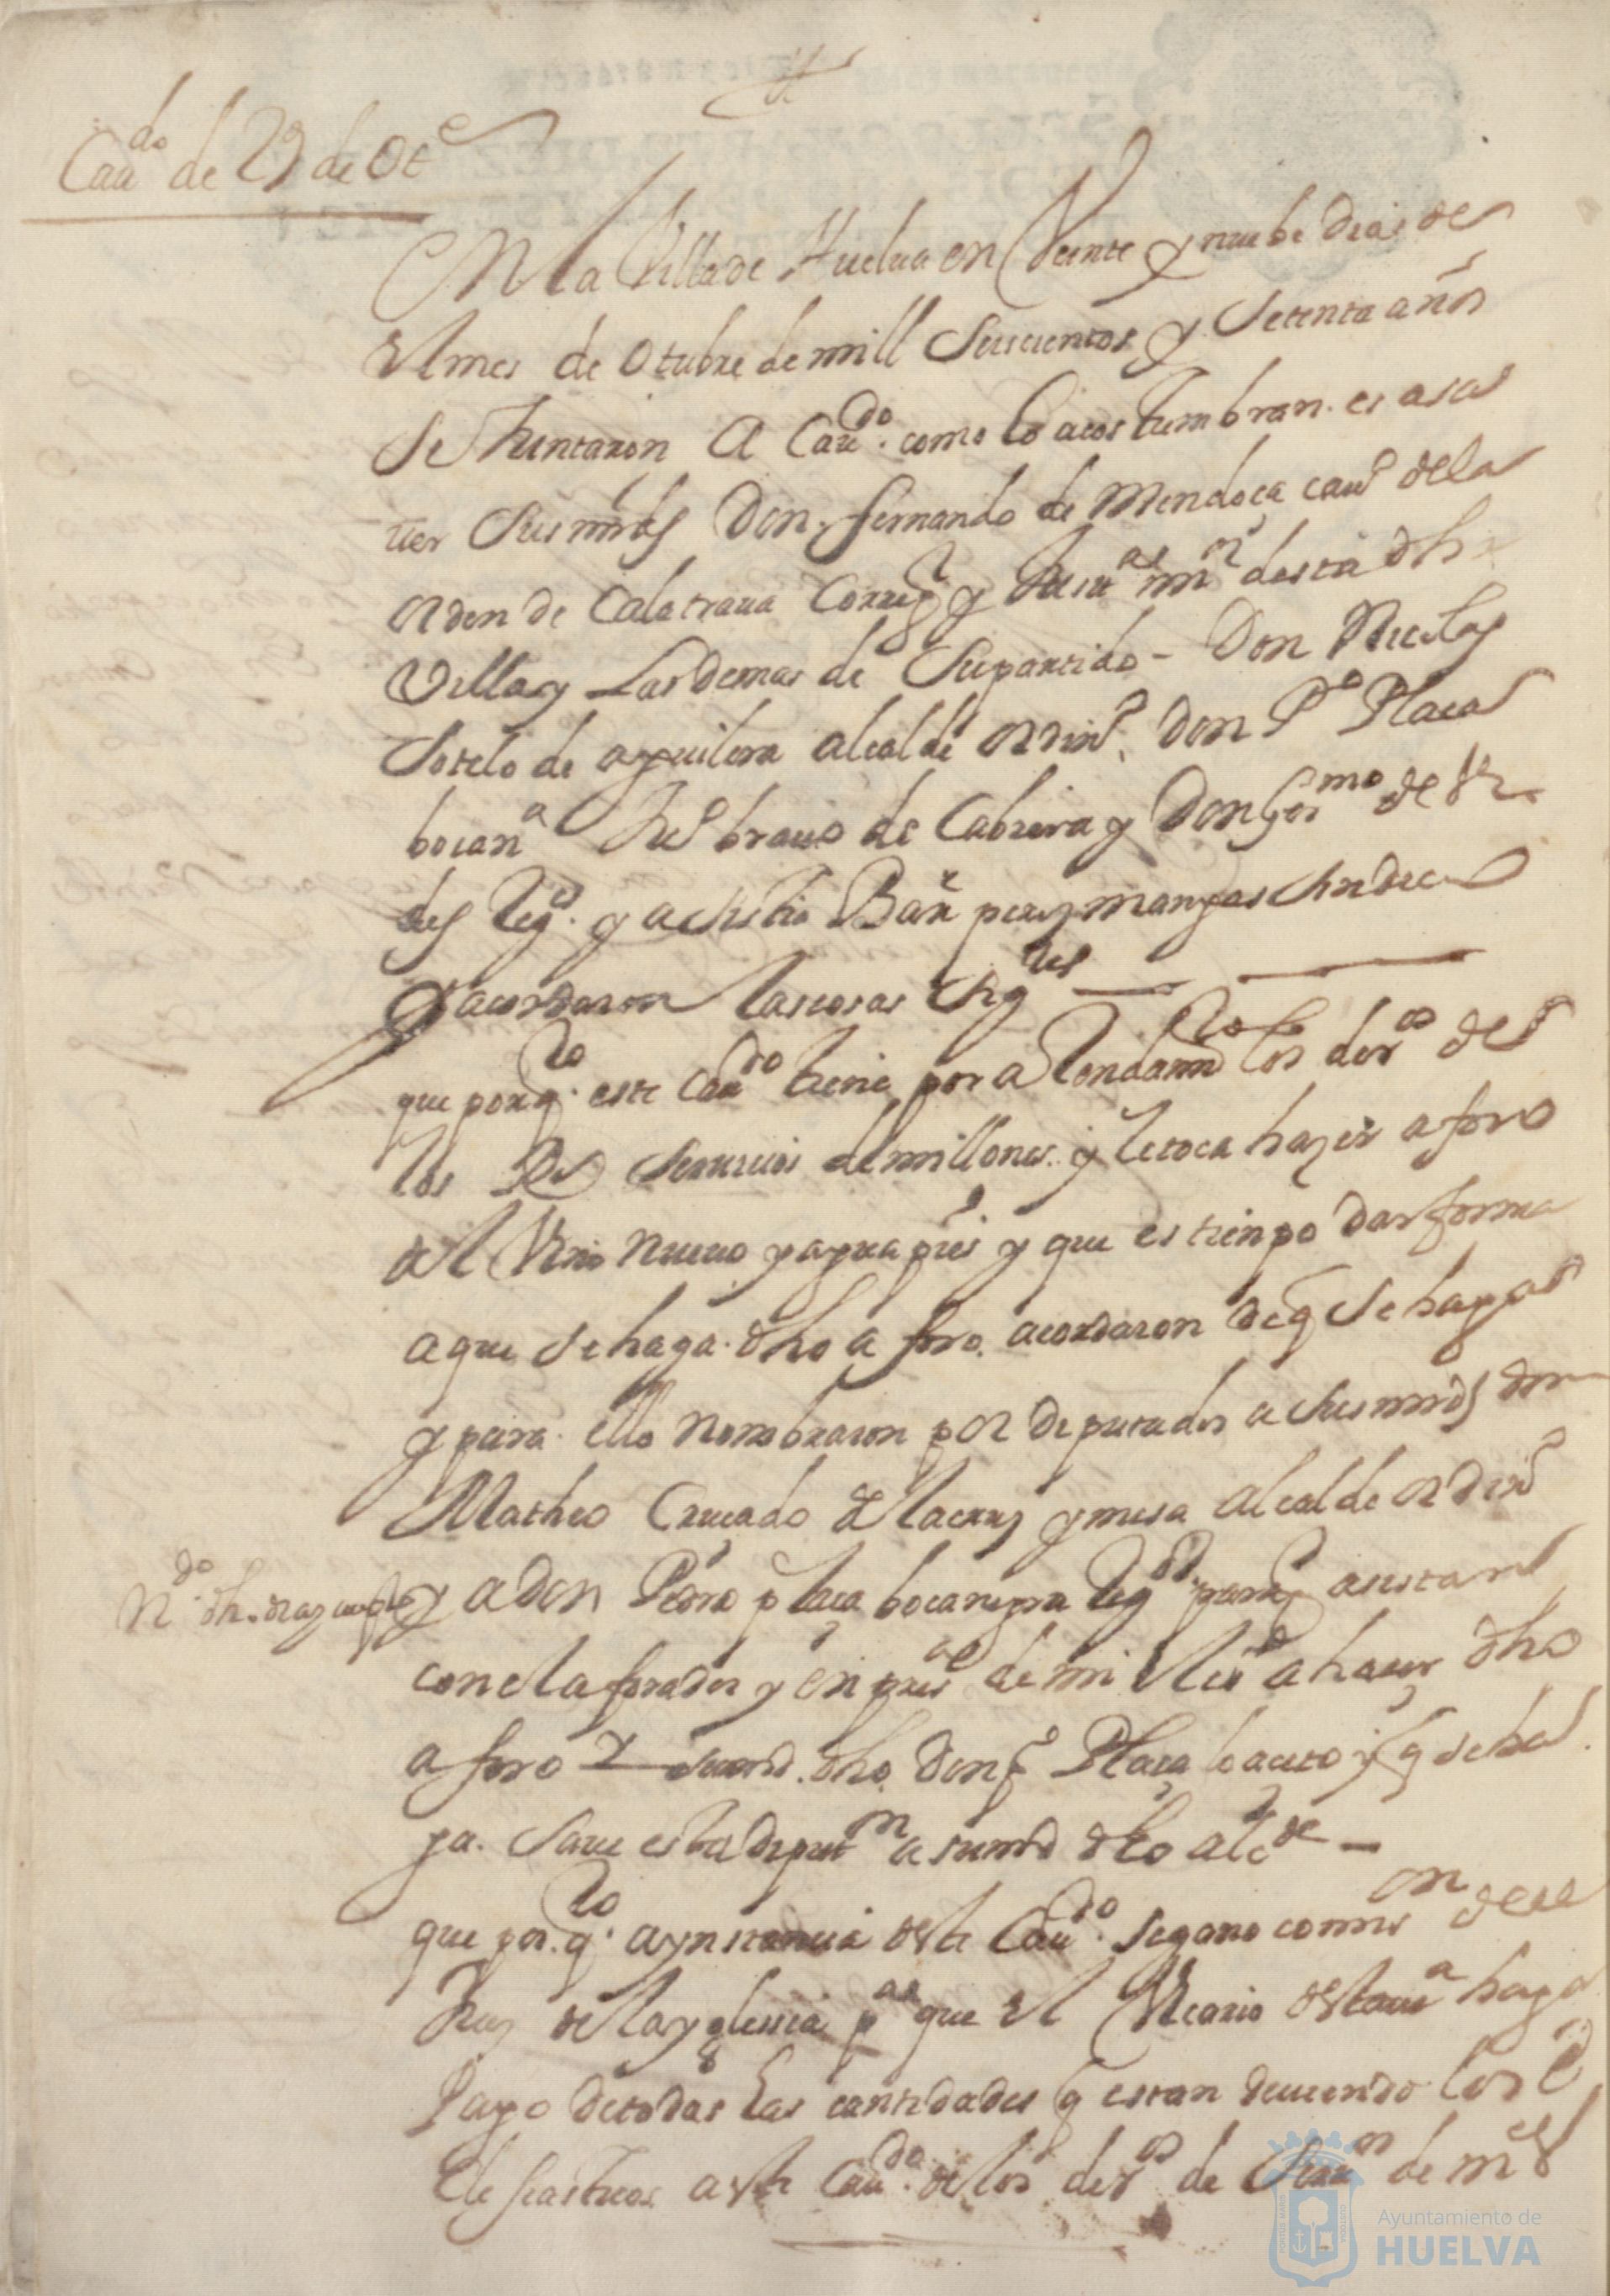 Cau.do de 29 de Ote
En la Villa de Huelua en Veinte y nuebe dias de
el mes de Otubre de mill Seiscientos y Setenta años
se Juntaron A Cau.do como lo acostumbran es a sa
uer Sus mrds Don fernando de Mendoça cauo de la
orden de Calatraua Corregr y Justa mor desta dha
Villa y Las demas de Su partido - Don Nicolas
Sotelo de aguilera alcalde ordino Don Po Plaça
bocana Juo brauo de Cabrera y Don Germo de
des Regs. y asistio Bar perez mangas Sindico
y acordaron las cosas Sigtes
que por q.to este Cau.do tiene por arrendamo los deros de
los Rs Seruicios de millones y le toca hazer aforo
del Vino nueuo y agua pies y que es tienpo dar forma
a que se haga dho aforo. acordaron de q se haga
y para ello nonbraron por deputados a sus mrds don
Matheo Cruçado de la cruz y mesa alcalde ordino
y a Don Pedro plaça bocanegra Regor para q asistan
con el aforador y en presa de mi el escno a hacer dho
aforo Y su md. dho Don Po Plaça lo aceto y q se ha
ga sauer esta deputon a su md dho alcde -
que por q.to a ynstancia deste Cau.do se gano comison de el
Juez de la yglessia pa que el Vicario desta va haga
Pago de todas las cantidades q estan deuiendo los e
clesiasticos a este Cau.do de los deros de Seruos de mes
Ayuntamiento de
HUELVA